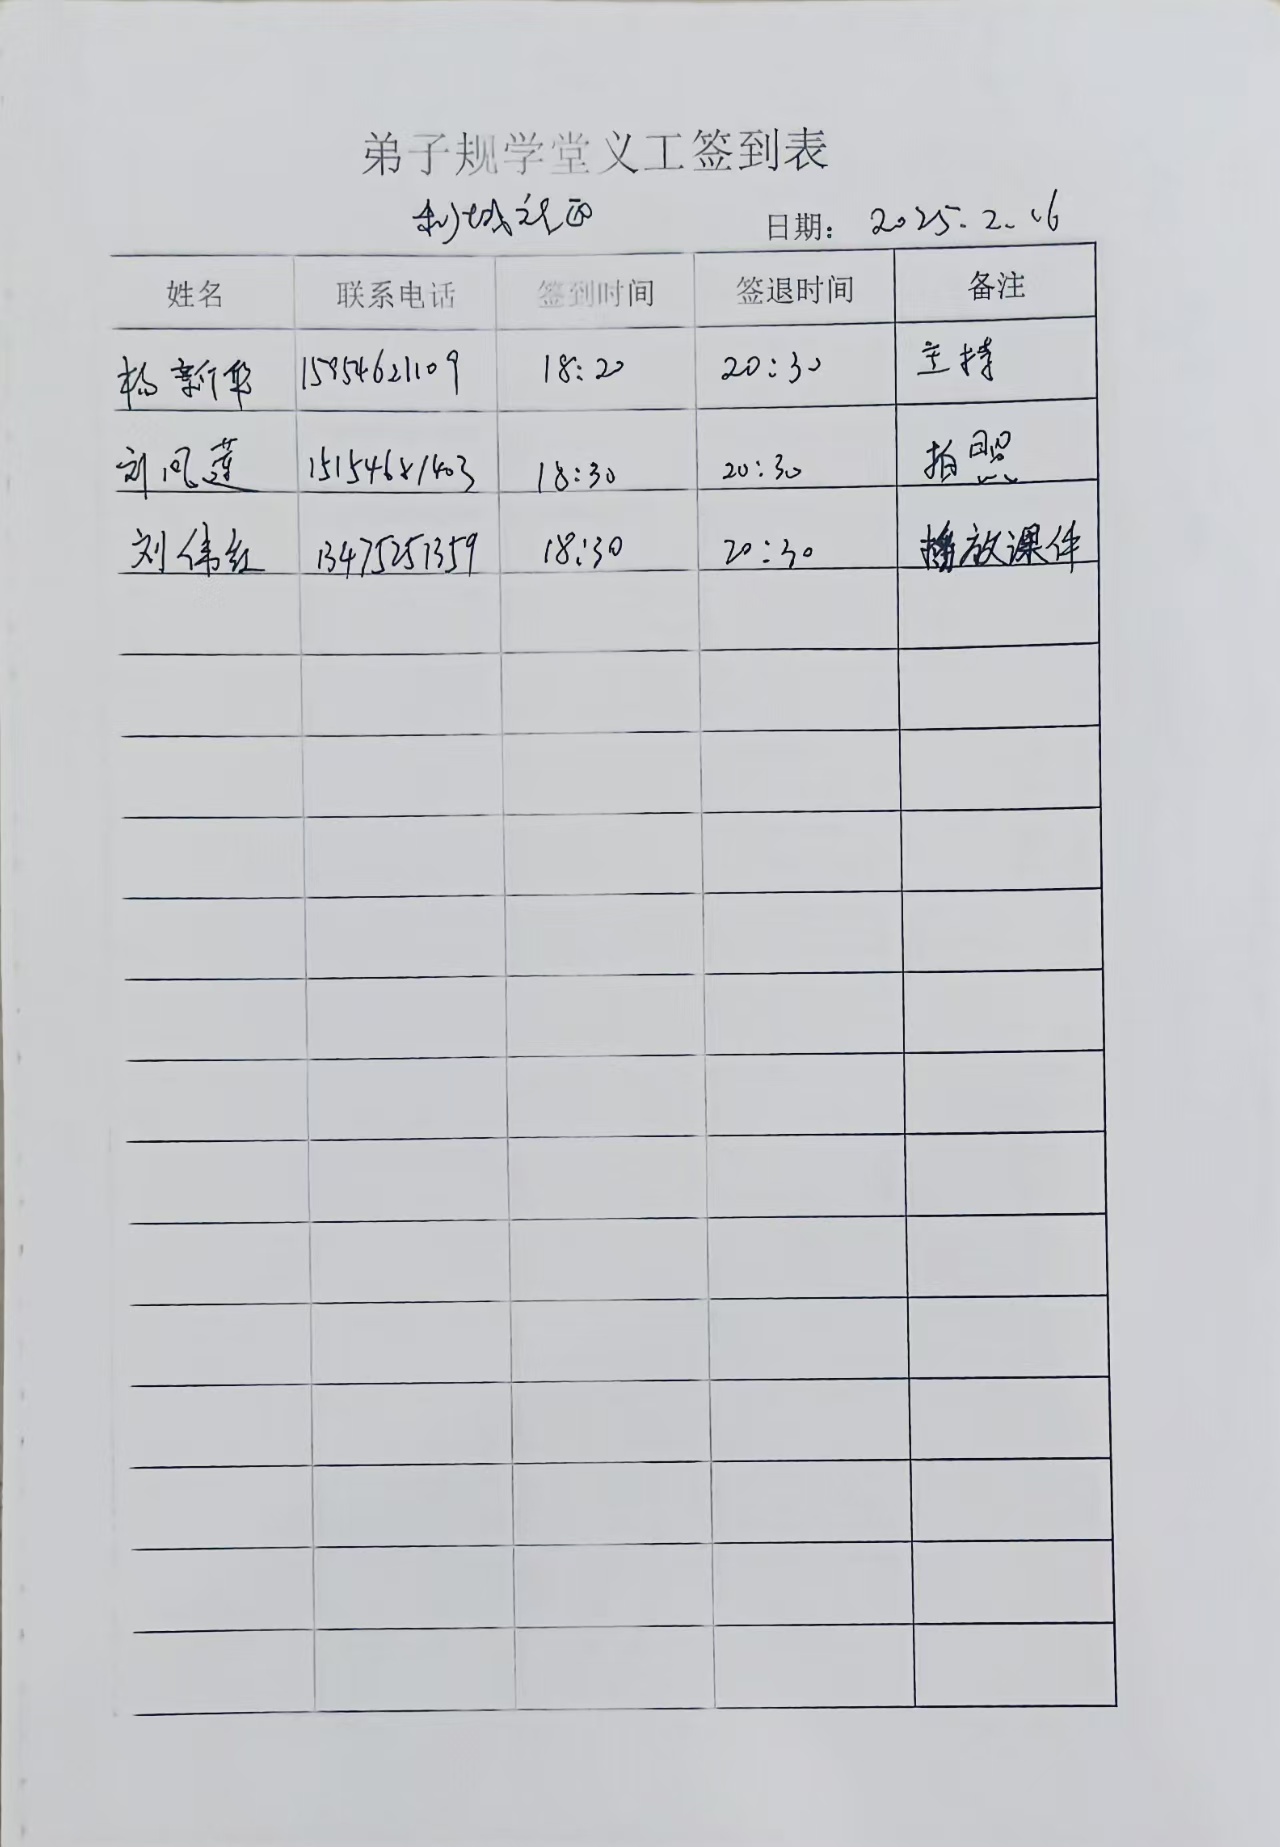 弟子规学堂义工签到表
利城社区 日期: 2025.2.16
姓名 联系电话 签到时间 签退时间 备注
杨新华 15954621109 18:20 20:30 主持
刘凤莲 18:30 20:30 拍照
刘伟红 13475251359 18:30 20:30 播放课件